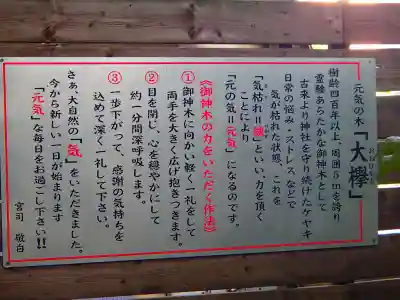 元気の木「大欅」
おおけやき
樹齢四百年以上、周囲5mを誇り
霊験あらたかな御神木として
古来より神社を守り続けたケヤキ
日常の悩み・ストレスなどで
気が枯れた状態、これを
「気枯れ=穢」といい、力を頂く
ことにより
「元の気=元気」になるのです。
《御神木の力をいただく作法》
①御神木に向かい軽く一礼をして
両手を大きく広げ抱きつきます。
②目を閉じ、心を穏やかにして
約一分間深呼吸します。
③一歩下がって、感謝の気持ちを
込めて深く一礼して下さい。
さぁ、大自然の「気」をいただきました。
今から新しい一日が始まります
「元気」な毎日をお過ごし下さい!!
宮司 敬白